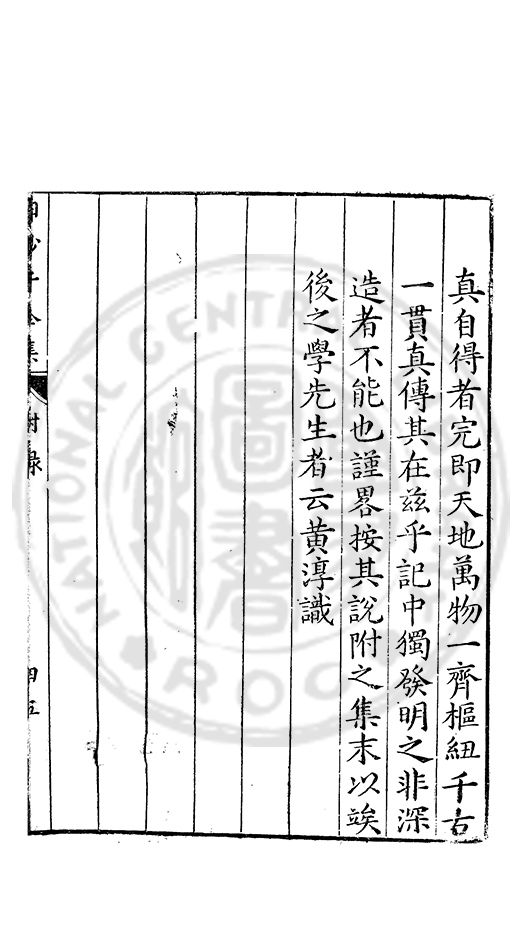 真自得者完即天地萬物一齊樞紐千古
一貫真傳其在兹乎記中獨發明之非深
造者不能也謹畧按其說附之集末以竢
後之學先生者云黄淳識
全集
附錄
四五
NATIONAL CENTRAL LIBRARY R.O.C.